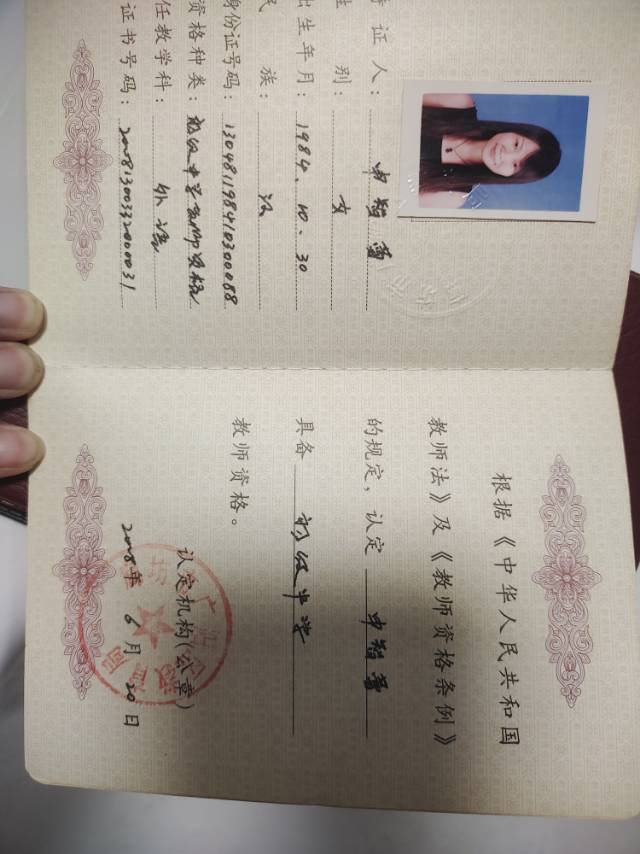 持证人：申智蕾
性别：女
出生年月：1984.10.30
民族：汉
身份证号码：130481198410300088
资格种类：初级中学教师资格
任教学科：外语
证书号码：20081300332000031
根据《中华人民共和国
教师法》及《教师资格条例》
的规定，认定 申智蕾
具备 初级中学
教师资格。
认定机构(公章)
2008年6月20日